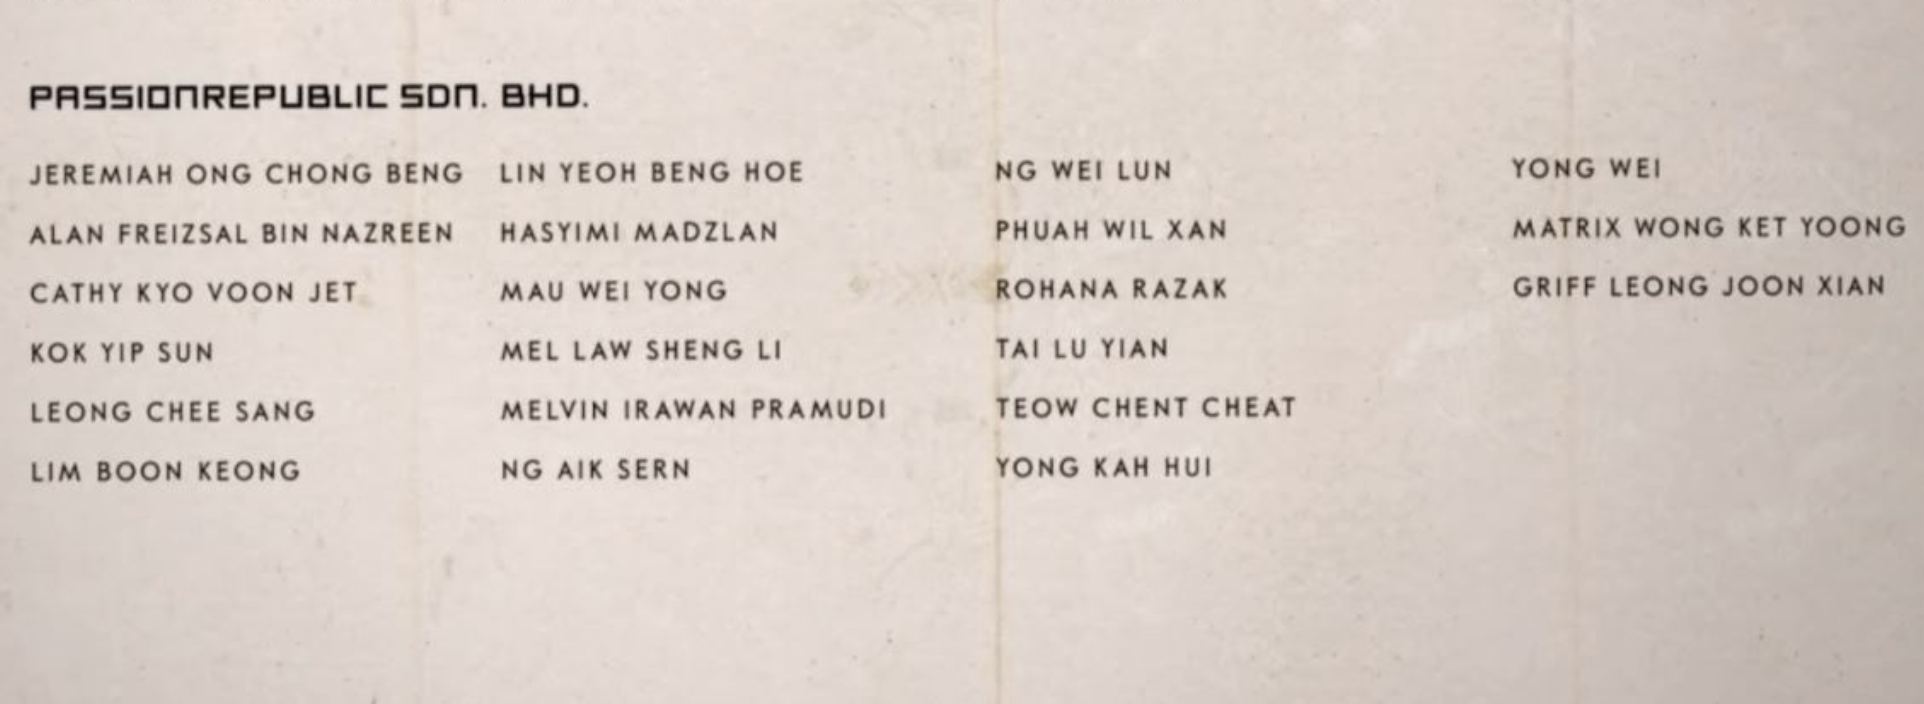 PASSIONREPUBLIC SDN. BHD.
JEREMIAH ONG CHONG BENG
ALAN FREIZSAL BIN NAZREEN
CATHY KYO VOON JET
KOK YIP SUN
LEONG CHEE SANG
LIM BOON KEONG
LIN YEOH BENG HOE
HASYIMI MADZLAN
MAU WEI YONG
MEL LAW SHENG LI
MELVIN IRAWAN PRAMUDI
NG AIK SERN
NG WEI LUN
PHUAH WIL XAN
ROHANA RAZAK
TAI LU YIAN
TEOW CHENT CHEAT
YONG KAH HUI
YONG WEI
MATRIX WONG KET YOONG
GRIFF LEONG JOON XIAN